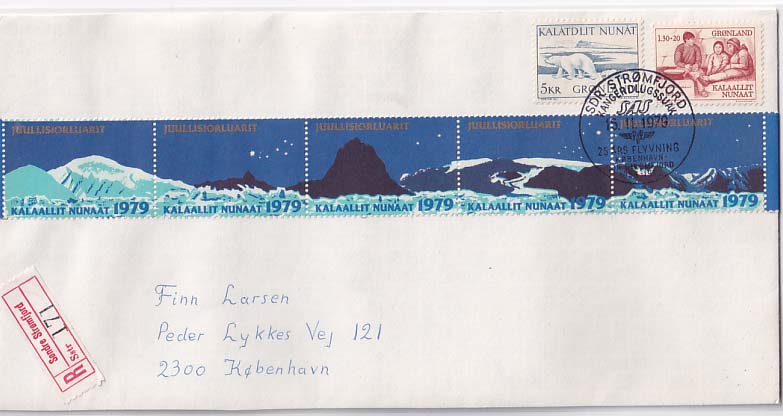 KALÂTDLIT NUNÂT
5KR GRØ
1.30+20 GRØNLAND
KALAALLIT
NUNAAT
SDR. STRØMFJORD
KANGERDLUGSSUAK
SAS
1979
25 ÅRS FLYVNING
KØBENHAVN-
JUULLISIORLUARIT JUULLISIORLUARIT JUULLISIORLUARIT JUULLISIORLUARIT JUULLISIORLUARIT
KALAALLIT NUNAAT 1979 KALAALLIT NUNAAT 1979 KALAALLIT NUNAAT 1979 KALAALLIT NUNAAT 1979 KALAALLIT NUNAAT 1979
R
Sstr
171
Søndre Strømfjord
Finn Larsen
Peder Lykkes Vej 121
2300 København